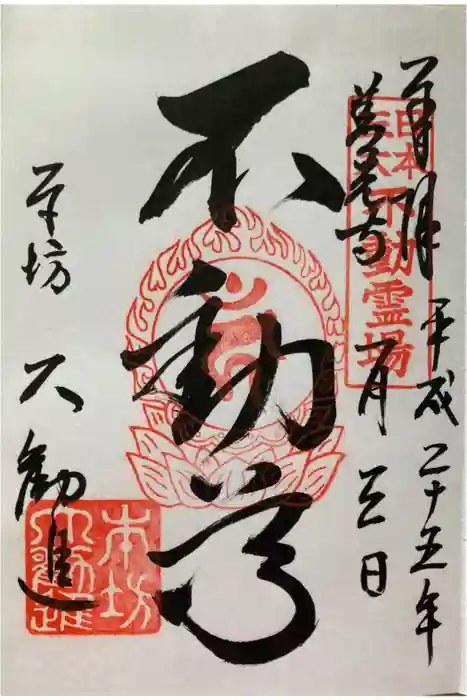 奉拝
平成二十五年
善光寺
一月三日
日本三大不動霊場
不動尊
本坊
大勧進
本坊
大勧進